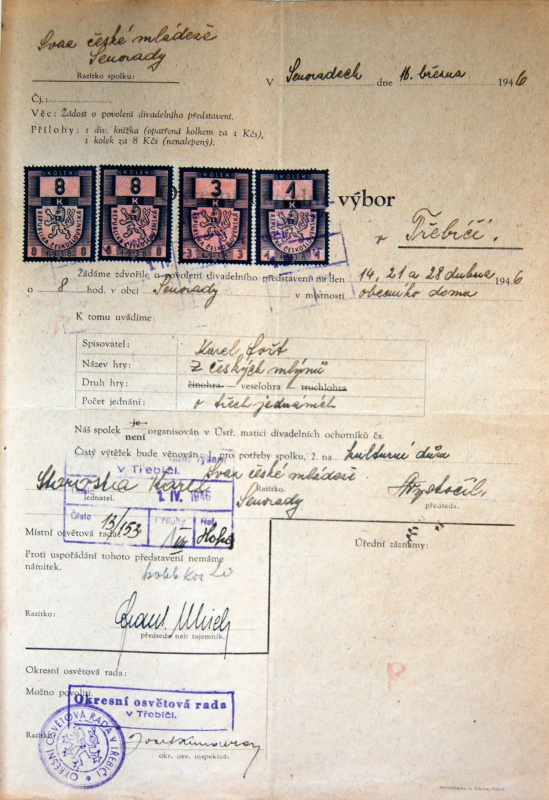 Svaz české mládeže
Senorady
Razítko spolku:
V Senoradech dne 18. března 1946
Čj.:
Věc: Žádost o povolení divadelního představení.
Přílohy: 1 div. knížka (opatřená kolkem za 1 Kčs),
1 kolek za 8 Kčs (nenalepený).
KOLEK KOLEK KOLEK KOLEK
8 8 3 1
K K K K
REPUBLIKA ČESKOSLOVENSKÁ
1938
8 8 3 3 1 1
výbor
v Třebíči.
Žádáme zdvořile o povolení divadelního představení na den 14, 21 a 28 dubna 1946
o 8 hod. v obci Senorady v místnosti obecního domu
K tomu uvádíme:
Spisovatel: Karel Fořt
Název hry: Z českých mlýnů
Druh hry: činohra veselohra truchlohra
Počet jednání: o třech jednáních
Náš spolek je není organisován v Ústř. matici divadelních ochotníků čs.
Čistý výtěžek bude věnován 1. pro potřeby spolku, 2. na kulturní dům
v Třebíči.
Svaz české mládeže
Senorady
Karel
jednatel.
Razítko.
předseda.
Došlo 1. IV. 1946
Číslo 13/153 Přílohy Ref.
Místní osvětová rada:
Úřední záznamy:
Proti uspořádání tohoto představení nemáme
námitek.
Razítko:
předseda neb tajemník.
Okresní osvětová rada:
Možno povoliti.
Okresní osvětová rada
v Třebíči.
OKRESNÍ OSVĚTOVÁ RADA V TŘEBÍČI
Razítko:
okr. osv. inspektor.